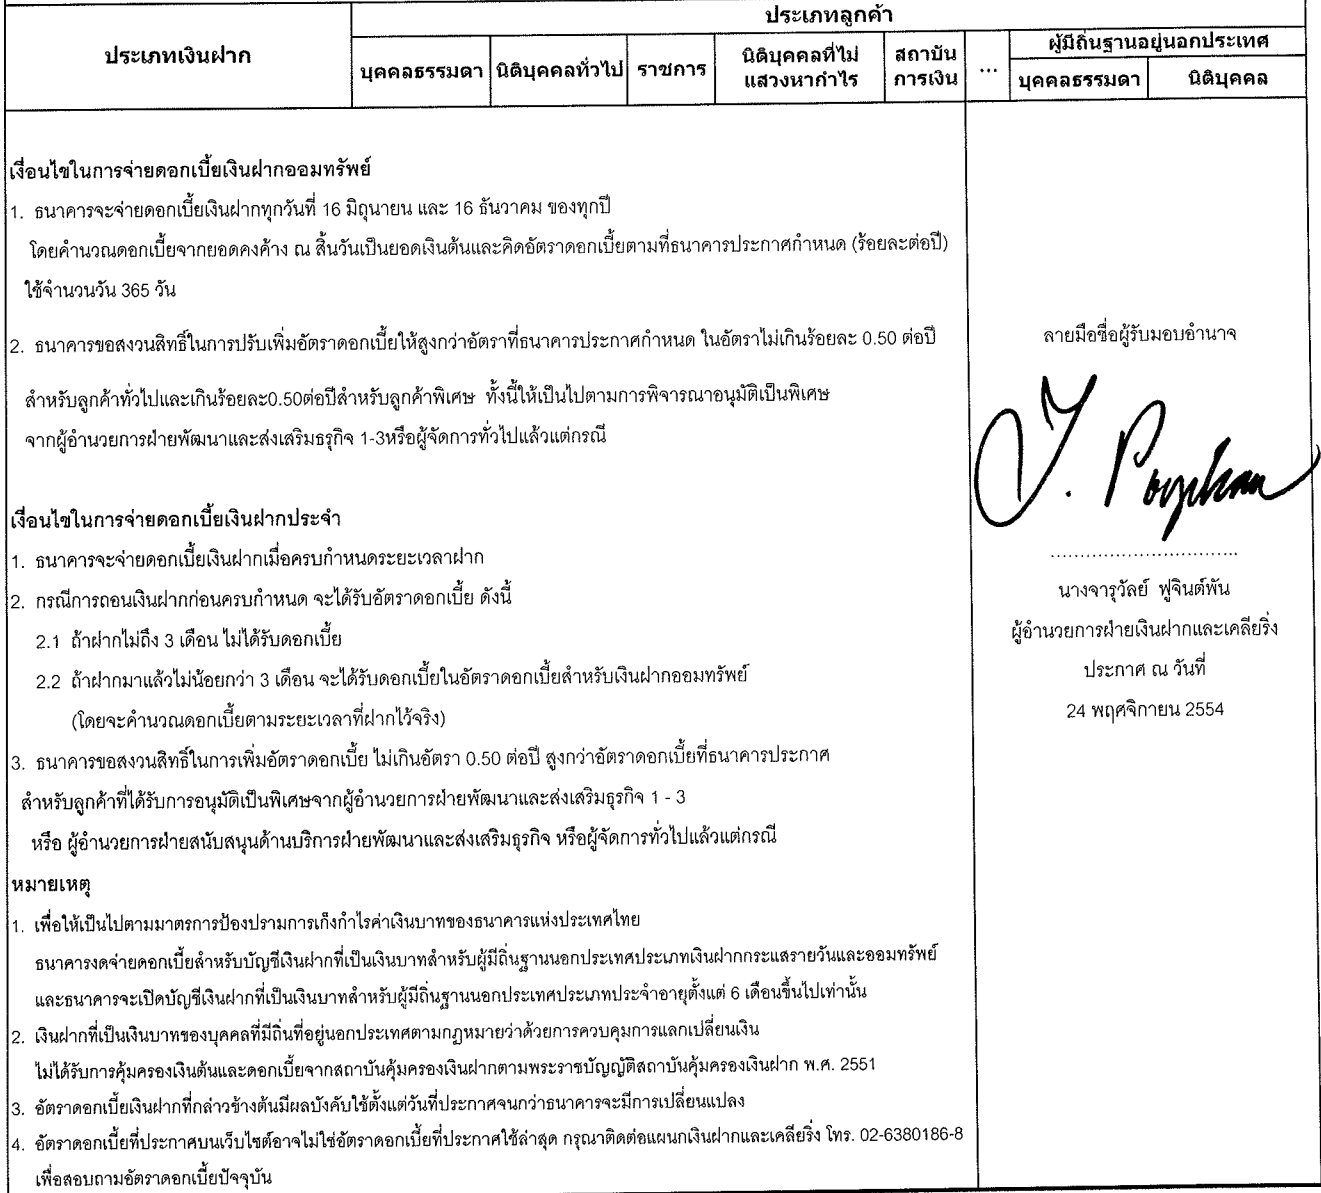 ประเภทลูกค้า
ประเภทเงินฝาก
บุคคลธรรมดา
นิติบุคคลทั่วไป
ราชการ
นิติบุคคลที่ไม่
แสวงหากำไร
สถาบัน
การเงิน
...
ผู้มีถิ่นฐานอยู่นอกประเทศ
บุคคลธรรมดา
นิติบุคคล
เงื่อนไขในการจ่ายดอกเบี้ยเงินฝากออมทรัพย์
1. ธนาคารจะจ่ายดอกเบี้ยเงินฝากทุกวันที่ 16 มิถุนายน และ 16 ธันวาคม ของทุกปี
โดยคำนวณดอกเบี้ยจากยอดคงค้าง ณ สิ้นวันเป็นยอดเงินต้นและคิดอัตราดอกเบี้ยตามที่ธนาคารประกาศกำหนด (ร้อยละต่อปี)
ใช้จำนวนวัน 365 วัน
2. ธนาคารขอสงวนสิทธิ์ในการปรับเพิ่มอัตราดอกเบี้ยให้สูงกว่าอัตราที่ธนาคารประกาศกำหนด ในอัตราไม่เกินร้อยละ 0.50 ต่อปี
สำหรับลูกค้าทั่วไปและเกินร้อยละ0.50ต่อปีสำหรับลูกค้าพิเศษ ทั้งนี้ให้เป็นไปตามการพิจารณาอนุมัติเป็นพิเศษ
จากผู้อำนวยการฝ่ายพัฒนาและส่งเสริมธรุกิจ 1-3หรือผู้จัดการทั่วไปแล้วแต่กรณี
เงื่อนไขในการจ่ายดอกเบี้ยเงินฝากประจำ
1. ธนาคารจะจ่ายดอกเบี้ยเงินฝากเมื่อครบกำหนดระยะเวลาฝาก
2. กรณีการถอนเงินฝากก่อนครบกำหนด จะได้รับอัตราดอกเบี้ย ดังนี้
2.1 ถ้าฝากไม่ถึง 3 เดือน ไม่ได้รับดอกเบี้ย
2.2 ถ้าฝากมาแล้วไม่น้อยกว่า 3 เดือน จะได้รับดอกเบี้ยในอัตราดอกเบี้ยสำหรับเงินฝากออมทรัพย์
(โดยจะคำนวณดอกเบี้ยตามระยะเวลาที่ฝากไว้จริง)
3. ธนาคารขอสงวนสิทธิ์ในการเพิ่มอัตราดอกเบี้ย ไม่เกินอัตรา 0.50 ต่อปี สูงกว่าอัตราดอกเบี้ยที่ธนาคารประกาศ
สำหรับลูกค้าที่ได้รับการอนุมัติเป็นพิเศษจากผู้อำนวยการฝ่ายพัฒนาและส่งเสริมธุรกิจ 1 - 3
หรือ ผู้อำนวยการฝ่ายสนับสนุนด้านบริการฝ่ายพัฒนาและส่งเสริมธุรกิจ หรือผู้จัดการทั่วไปแล้วแต่กรณี
หมายเหตุ
1. เพื่อให้เป็นไปตามมาตรการป้องปรามการเก็งกำไรค่าเงินบาทของธนาคารแห่งประเทศไทย
ธนาคารงดจ่ายดอกเบี้ยสำหรับบัญชีเงินฝากที่เป็นเงินบาทสำหรับผู้มีถิ่นฐานนอกประเทศประเภทเงินฝากกระแสรายวันและออมทรัพย์
และธนาคารจะเปิดบัญชีเงินฝากที่เป็นเงินบาทสำหรับผู้มีถิ่นฐานนอกประเทศประเภทประจำอายุตั้งแต่ 6 เดือนขึ้นไปเท่านั้น
2. เงินฝากที่เป็นเงินบาทของบุคคลที่มีถิ่นที่อยู่นอกประเทศตามกฎหมายว่าด้วยการควบคุมการแลกเปลี่ยนเงิน
ไม่ได้รับการคุ้มครองเงินต้นและดอกเบี้ยจากสถาบันคุ้มครองเงินฝากตามพระราชบัญญัติสถาบันคุ้มครองเงินฝาก พ.ศ. 2551
3. อัตราดอกเบี้ยเงินฝากที่กล่าวข้างต้นมีผลบังคับใช้ตั้งแต่วันที่ประกาศจนกว่าธนาคารจะมีการเปลี่ยนแปลง
4. อัตราดอกเบี้ยที่ประกาศบนเว็บไซต์อาจไม่ใช่อัตราดอกเบี้ยที่ประกาศใช้ล่าสุด กรุณาติดต่อแผนกเงินฝากและเคลียริ่ง โทร. 02-6380186-8
เพื่อสอบถามอัตราดอกเบี้ยปัจจุบัน
ลายมือชื่อผู้รับมอบอำนาจ
................................
นางจารุวัลย์ ฟูจินต์พัน
ผู้อำนวยการฝ่ายเงินฝากและเคลียริ่ง
ประกาศ ณ วันที่
24 พฤศจิกายน 2554